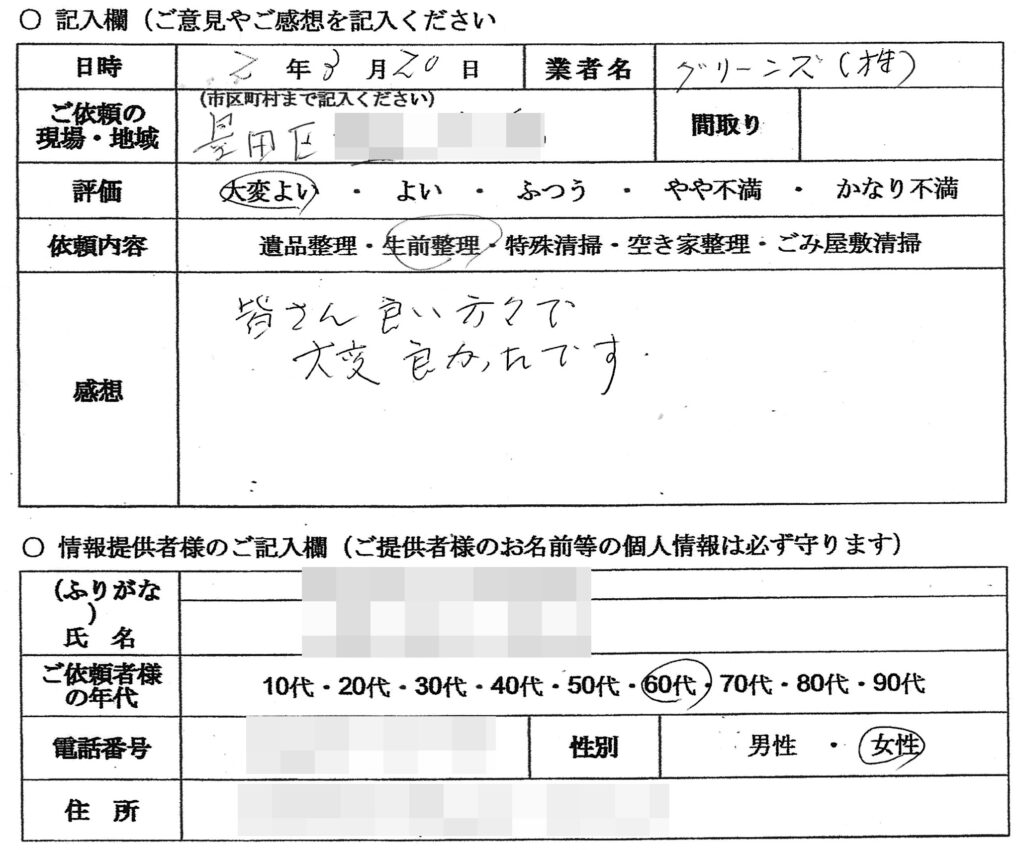 ○ 記入欄（ご意見やご感想を記入ください
日時 2 年 3 月 20 日 業者名 グリーンズ(株)
ご依頼の現場・地域 (市区町村まで記入ください) 墨田区 間取り
評価 大変よい ・ よい ・ ふつう ・ やや不満 ・ かなり不満
依頼内容 遺品整理・生前整理・特殊清掃・空き家整理・ごみ屋敷清掃
感想
皆さん良い方々で
大変良かったです.
○ 情報提供者様のご記入欄（ご提供者様のお名前等の個人情報は必ず守ります）
(ふりがな)
氏 名
ご依頼者様の年代 10代・20代・30代・40代・50代・60代・70代・80代・90代
電話番号 性別 男性 ・ 女性
住 所